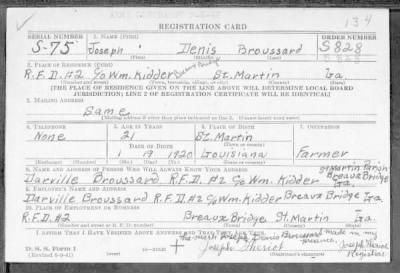 134
REGISTRATION CARD
SERIAL NUMBER 1. NAME (Print) ORDER NUMBER
S-75 Joseph Denis Broussard S828
(First) (Middle) (Last)
2. PLACE OF RESIDENCE (Print)
R.F.D. #2 c/o Wm. Kidder Breaux Bridge St. Martin La.
(Number and street) (Town, township, village, or city) (County) (State)
[THE PLACE OF RESIDENCE GIVEN ON THE LINE ABOVE WILL DETERMINE LOCAL BOARD
JURISDICTION; LINE 2 OF REGISTRATION CERTIFICATE WILL BE IDENTICAL]
3. MAILING ADDRESS
Same
[Mailing address if other than place indicated on line 2. If same insert word same]
4. TELEPHONE 5. AGE IN YEARS 6. PLACE OF BIRTH 7. OCCUPATION
None 21 St. Martin
DATE OF BIRTH (Town or county)
1 19 1920 Louisiana Farmer
(Exchange) (Number) (Mo.) (Day) (Yr.) (State or country)
8. NAME AND ADDRESS OF PERSON WHO WILL ALWAYS KNOW YOUR ADDRESS St Martin Parish
Darville Broussard R.F.D. #2 c/o Wm. Kidder Breaux Bridge La.
9. EMPLOYER'S NAME AND ADDRESS
Darville Broussard R.F.D. #2 c/o Wm. Kidder Breaux Bridge La.
10. PLACE OF EMPLOYMENT OR BUSINESS
R.F.D. #2 Breaux Bridge St. Martin La.
(Number and street or R.F.D. number) (Town) (County) (State)
I AFFIRM THAT I HAVE VERIFIED ABOVE ANSWERS AND THAT THEY ARE TRUE.
The mark Joseph Denis Broussard made in my presence.
D. S. S. Form 1
(Revised 6-9-41) Joseph Theriot
Registrar